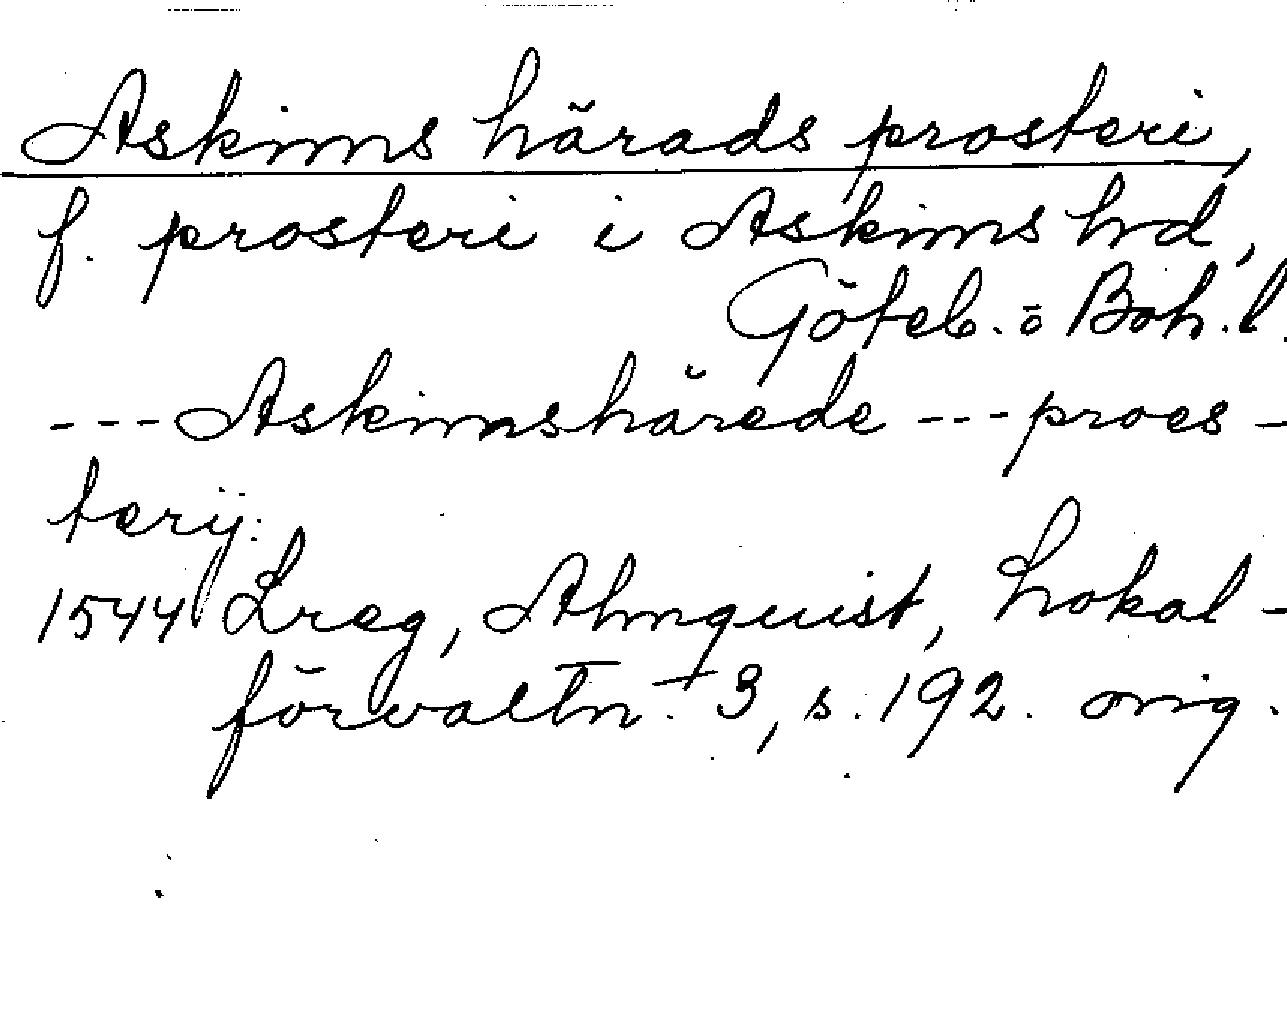 Askims härads prosteri,
f. prosteri i Askims hd,
Göteb. o Boh. l.
--- Askimshärede --- proes-
terij:
1544 Lreg, Almquist, Lokal-
förvaltn. 3, s. 192. orig.